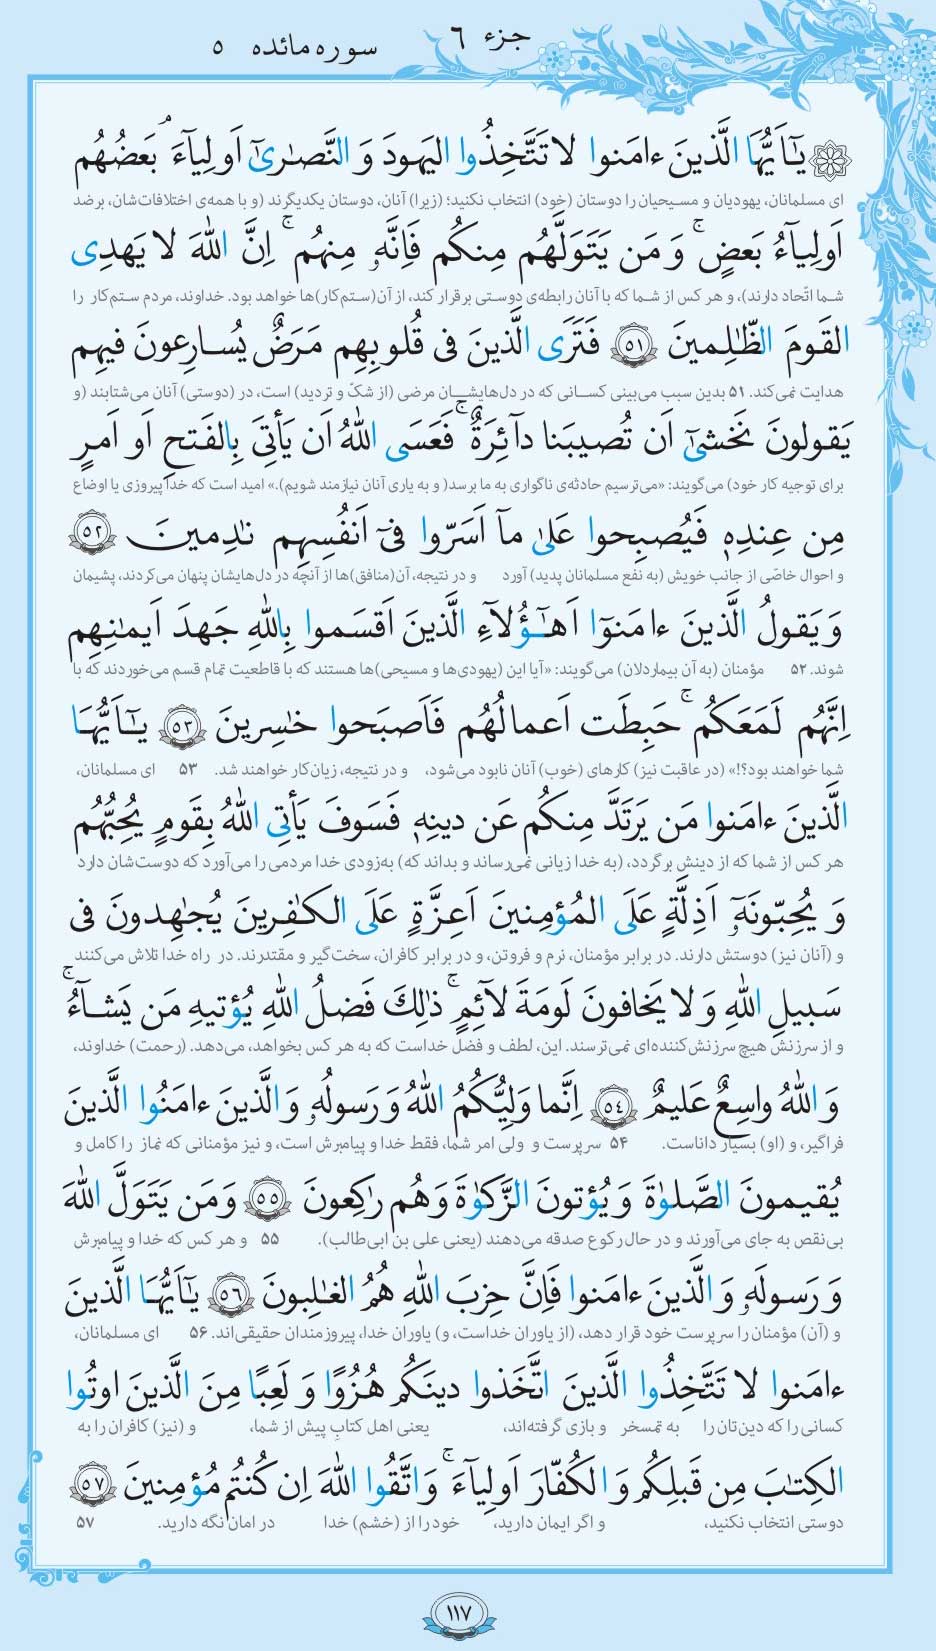 جزء ٦
سوره مائده ٥
يٰٓاَيُّهَا الَّذينَ ءامَنوا لا تَتَّخِذُوا اليَهودَ وَ النَّصـٰرىٰٓ اَولِيآءَ ۘ بَعضُهُم
ای مسلمانان، یهودیان و مسیحیان را دوستان (خود) انتخاب نکنید؛ (زیرا) آنان، دوستان یکدیگرند (و با همه‌ی اختلافات‌شان، برضد
اَولِيآءُ بَعضٍ ۚ وَ مَن يَتَوَلَّهُم مِنكُم فَاِنَّهٗ مِنهُم ۚ اِنَّ اللّٰهَ لا يَهدِى
شما اتّحاد دارند)، و هر کس از شما که با آنان رابطه‌ی دوستی برقرار کند، از آن(ستم‌کار)ها خواهد بود. خداوند، مردم ستم‌کار را
القَومَ الظّٰلِمينَ ﴿٥١﴾ فَتَرَى الَّذينَ فى قُلوبِهِم مَرَضٌ يُسـارِعونَ فيهِم
هدایت نمی‌کند. ۵۱ بدین سبب می‌بینی کسـانی که در دل‌هایشـان مرضی (از شکّ و تردید) است، در (دوستی) آنان می‌شتابند (و
يَقولونَ نَخشىٰٓ اَن تُصيبَنا دآئِرَةٌ ۚ فَعَسَى اللّٰهُ اَن يَأتِىَ بِالفَتحِ اَو اَمرٍ
برای توجیه کار خود) می‌گویند: «می‌ترسیم حادثه‌ی ناگواری به ما برسد( و به یاری آنان نیازمند شویم).» امید است که خدا پیروزی یا اوضاع
مِن عِندِهٖ فَيُصبِحوا عَلىٰ مآ اَسَرّوا فىٓ اَنفُسِهِم نٰدِمينَ ﴿٥٢﴾
و احوال خاصّی از جانب خویش (به نفع مسلمانان پدید) آورد و در نتیجه، آن(منافق)ها از آنچه در دل‌هایشان پنهان می‌کردند، پشیمان
وَ يَقولُ الَّذينَ ءامَنوٓا اَهـٰٓؤُلآءِ الَّذينَ اَقسَموا بِاللّٰهِ جَهدَ اَيمٰنِهِم
شوند. ۵۲ مؤمنان (به آن بیماردلان) می‌گویند: «آیا این (یهودی‌ها و مسیحی)ها هستند که با قاطعیت تمام قسم می‌خوردند که با
اِنَّهُم لَمَعَكُم ۚ حَبِطَت اَعمالُهُم فَاَصبَحوا خٰسِرينَ ﴿٥٣﴾ يٰٓاَيُّهَا
شما خواهند بود؟!» (در عاقبت نیز) کارهای (خوب) آنان نابود می‌شود، و در نتیجه، زیان‌کار خواهند شد. ۵۳ ای مسلمانان،
الَّذينَ ءامَنوا مَن يَرتَدَّ مِنكُم عَن دينِهٖ فَسَوفَ يَأتِى اللّٰهُ بِقَومٍ يُحِبُّهُم
هر کس از شما که از دینش برگردد، (به خدا زیانی نمی‌رساند و بداند که) به‌زودی خدا مردمی را می‌آورد که دوست‌شان دارد
وَ يُحِبّونَهٗٓ اَذِلَّةٍ عَلَى المُؤمِنينَ اَعِزَّةٍ عَلَى الكٰفِرينَ يُجٰهِدونَ فى
و (آنان نیز) دوستش دارند. در برابر مؤمنان، نرم و فروتن، و در برابر کافران، سخت‌گیر و مقتدرند. در راه خدا تلاش می‌کنند
سَبيلِ اللّٰهِ وَ لا يَخافونَ لَومَةَ لآئِمٍ ۚ ذٰلِكَ فَضلُ اللّٰهِ يُؤتيهِ مَن يَشـآءُ ۚ
و از سرزنش هیچ سرزنش‌کننده‌ای نمی‌ترسند. این، لطف و فضل خداست که به هر کس بخواهد، می‌دهد. (رحمت) خداوند،
وَ اللّٰهُ واسِعٌ عَليمٌ ﴿٥٤﴾ اِنَّما وَلِيُّكُمُ اللّٰهُ وَ رَسولُهٗ وَ الَّذينَ ءامَنُوا الَّذينَ
فراگیر، و (او) بسیار داناست. ۵۴ سرپرست و ولی امر شما، فقط خدا و پیامبرش است، و نیز مؤمنانی که نماز را کامل و
يُقيمونَ الصَّلوٰةَ وَ يُؤتونَ الزَّكوٰةَ وَ هُم رٰكِعونَ ﴿٥٥﴾ وَ مَن يَتَوَلَّ اللّٰهَ
بی‌نقص به جای می‌آورند و در حال رکوع صدقه می‌دهند (یعنی علی بن ابی‌طالب). ۵۵ و هر کس که خدا و پیامبرش
وَ رَسولَهٗ وَ الَّذينَ ءامَنوا فَاِنَّ حِزبَ اللّٰهِ هُمُ الغٰلِبونَ ﴿٥٦﴾ يٰٓاَيُّهَا الَّذينَ
و (آن) مؤمنان را سرپرست خود قرار دهد، (از یاوران خداست، و) یاوران خدا، پیروزمندان حقیقی‌اند. ۵۶ ای مسلمانان،
ءامَنوا لا تَتَّخِذُوا الَّذينَ اتَّخَذوا دينَكُم هُزُوًا وَ لَعِبًا مِنَ الَّذينَ اوتُوا
کسانی را که دین‌تان را به تمسخر و بازی گرفته‌اند، یعنی اهل کتابِ پیش از شما، و (نیز) کافران را به
الكِتٰبَ مِن قَبلِكُم وَ الكُفّارَ اَولِيآءَ ۚ وَ اتَّقُوا اللّٰهَ اِن كُنتُم مُؤمِنينَ ﴿٥٧﴾
دوستی انتخاب نکنید، و اگر ایمان دارید، خود را از (خشم) خدا در امان نگه دارید. ۵۷
١١٧